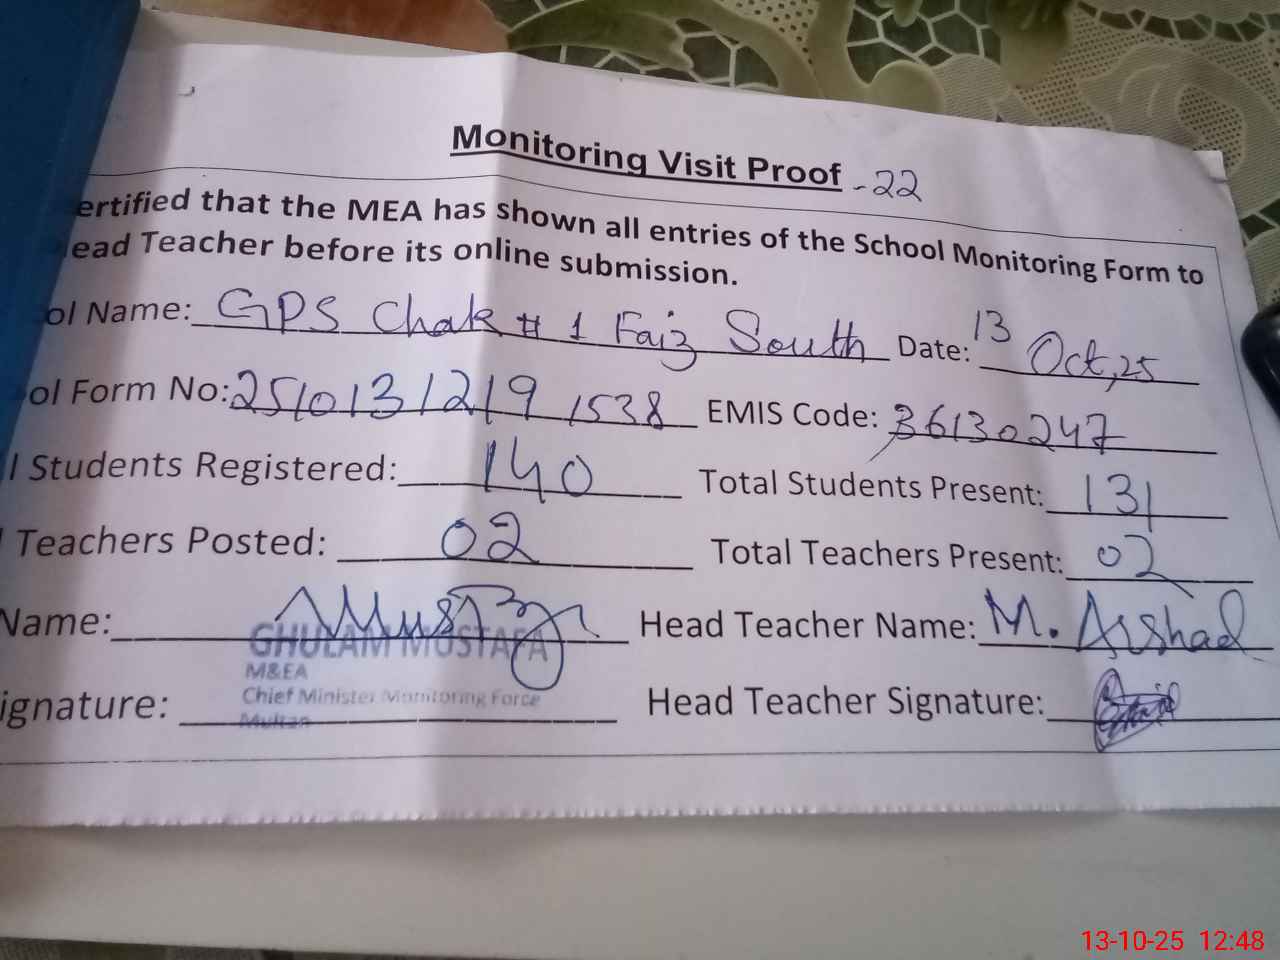 Monitoring Visit Proof -22
ertified that the MEA has shown all entries of the School Monitoring Form to
ead Teacher before its online submission.
ol Name: GPS Chak # 1 Faiz South Date: 13 Oct,25
ol Form No: 2510131219 1538 EMIS Code: 36130247
l Students Registered: 140 Total Students Present: 131
Teachers Posted: 02 Total Teachers Present: 02
Name: Head Teacher Name: M. Arshad
GHULAM MUSTAFA
M&EA
Chief Minister Monitoring Force
Multan
ignature: Head Teacher Signature:
13-10-25 12:48